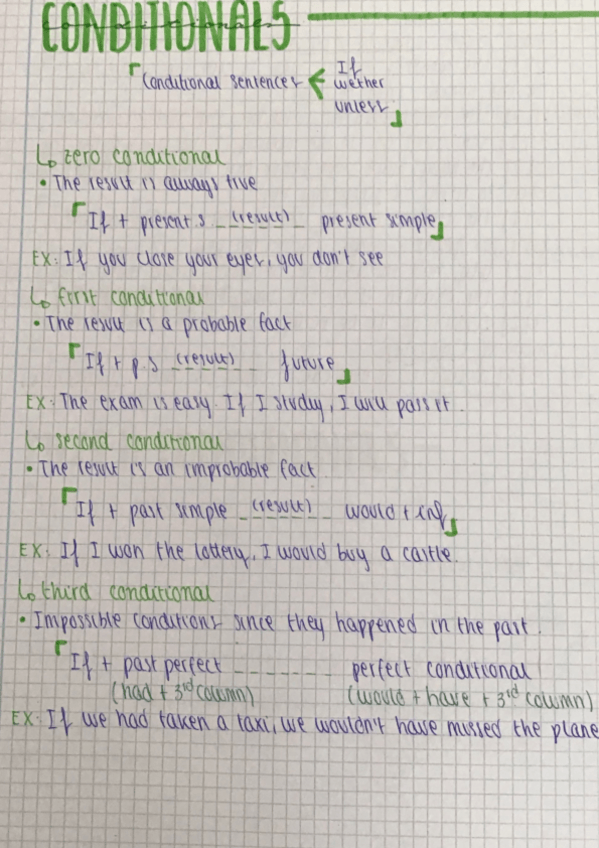 CONDITIONALS
Conditional sentences < If
wether
unless
↳ zero conditional
• The result is always true
「If + present s. _ (result) _ present simple」
EX: If you close your eyes, you don't see
↳ first conditional
• The result is a probable fact
「If + p.s _ (result) _ future」
EX: The exam is easy. If I study, I will pass it.
↳ second conditional
• The result is an improbable fact.
「If + past simple _ (result) _ would + inf」
EX: If I won the lottery, I would buy a castle.
↳ third conditional
• Impossible conditions since they happened in the past.
「If + past perfect _ _ _ _ _ _ _ perfect conditional
(had + 3rd column) (would + have + 3rd column)
EX: If we had taken a taxi, we wouldn't have missed the plane